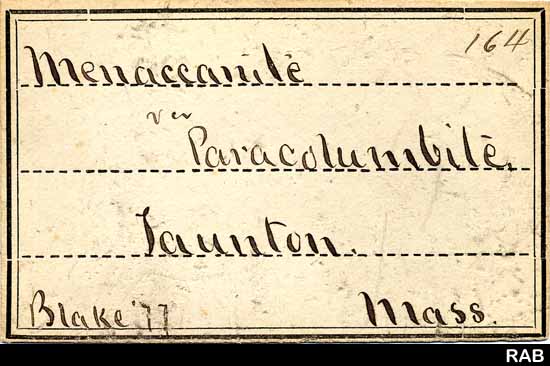 164
Menaccanite
var
Paracolumbite.
Taunton.
Blake '77 Mass.
RAB